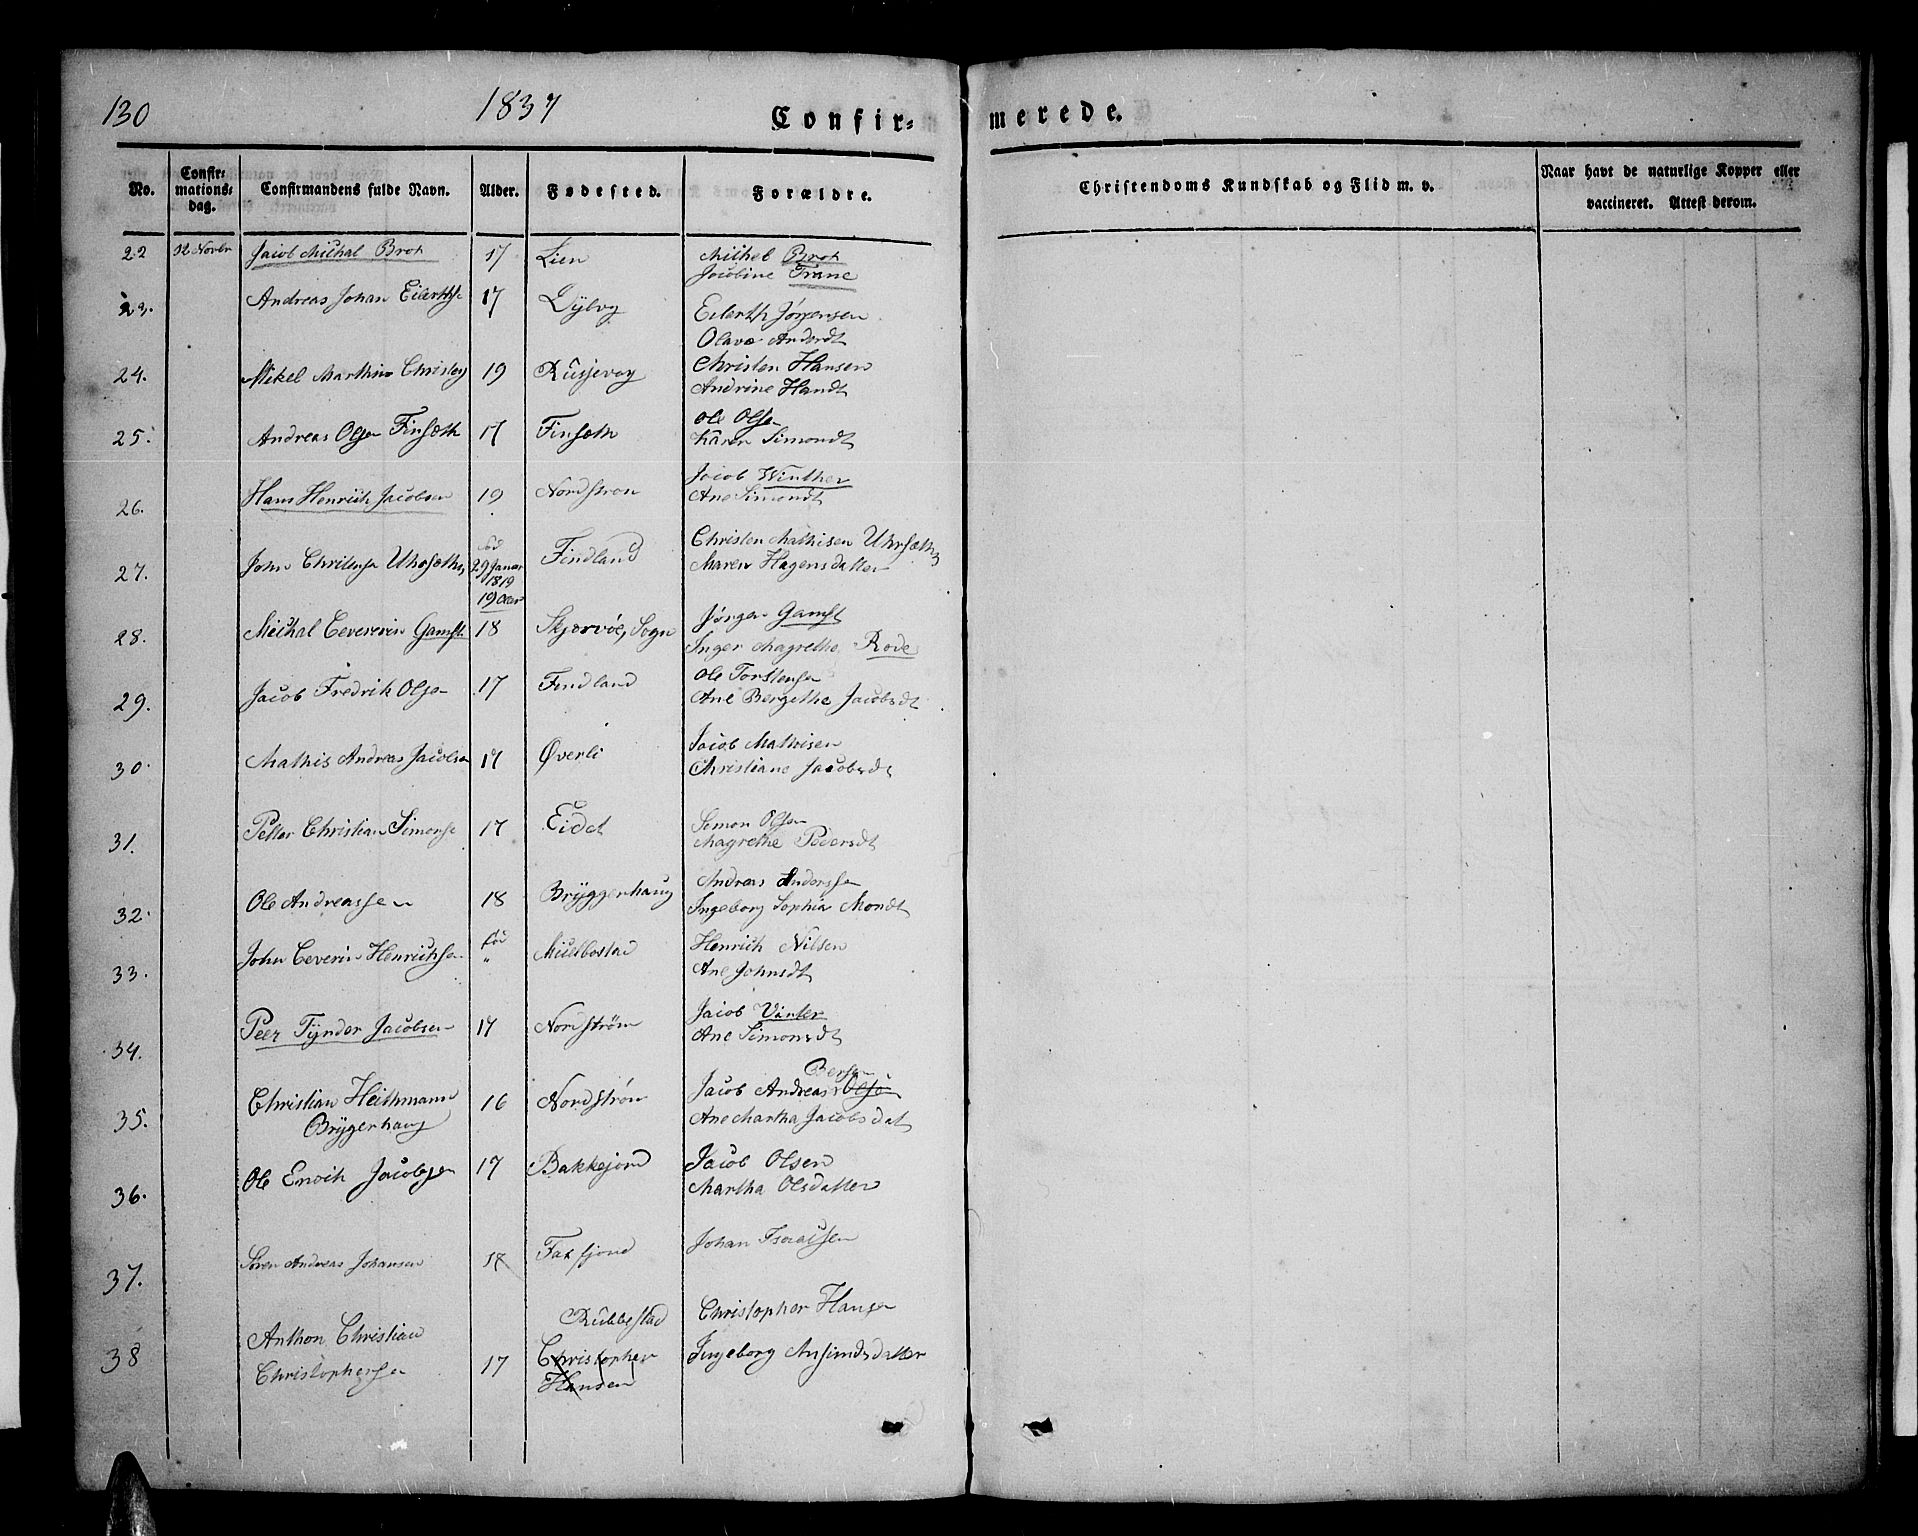 130
1837
Confir-
merede.
No.
Confir-
mations-
dag.
Confirmandens fulde Navn.
Alder.
Fødested.
Forældre.
Christendoms Kundskab og Flid m. v.
Naar havt de naturlige Kopper eller
vaccineret. Attest derom.
22 12 Novbr Jacob Michal Brox 17 Lien Michel Brox
Jocobine Trane
23. Andreas Johan Eilerthse 17 Dybvog Eilerth Jørgensen
Olava Andersdt
24. Mikel Marthin Christen 19 Russevog Christen Hansen
Andrine Handt
25. Andreas Olsen Finsæth 17 Finsæth Ole Olsen
Karen Simondt
26. Hans Henrich Jacobsen 19 Nordstrøn Jacob Winther
Ane Simondt
27. John Christense Uhrsæthe, fød
29 Januar
1819
19 Aar Findland Christen Mathisen Uhrsæth,
Maren Hagensdatter
28. Michal Ceverin Gamst. 18 Skjærvöe, Sogn Jørgen Gamst
Inger Magrethe Rove
29. Jacob Fredrik Olsen 17 Findland Ole Torstensen
Ane Bergethe Jacobsdt
30. Mathis Andreas Jacobsen 17 Øverli Jacob Mathisen
Christiane Jacobsdt
31. Petter Christian Simonse 17 Eidet Semon Olsen
Magrethe Pedersdt
32. Ole Andreassen 18 Bryggerhaug Andreas Anderssen
Ingeborg Sophia Mondt
33. John Ceverin Henrichsen fød " Miulbostad Henrich Nilsen
Ane Johnsdt
34. Peer Tynder Jacobsen 17 Nordstrøm Jacob Vinter
Ane Simonsdt
35. Christian Heithmann
Bryggerhaug 16 Nordstrøn Jacob Andreas Olsen
Ane Martha Jacobsdat
36. Ole Enoch Jacobsen 17 Bakkejord Jacob Olsen
Martha Olsdatter
37. Søren Andreas Johansen 18 Faxfjord Johan Isaachsen
38 Anthon Christian
Christophersen 17 Rubbestad
Christopher
Hansen Christopher Hansen
Ingeborg Ansimdsdatter